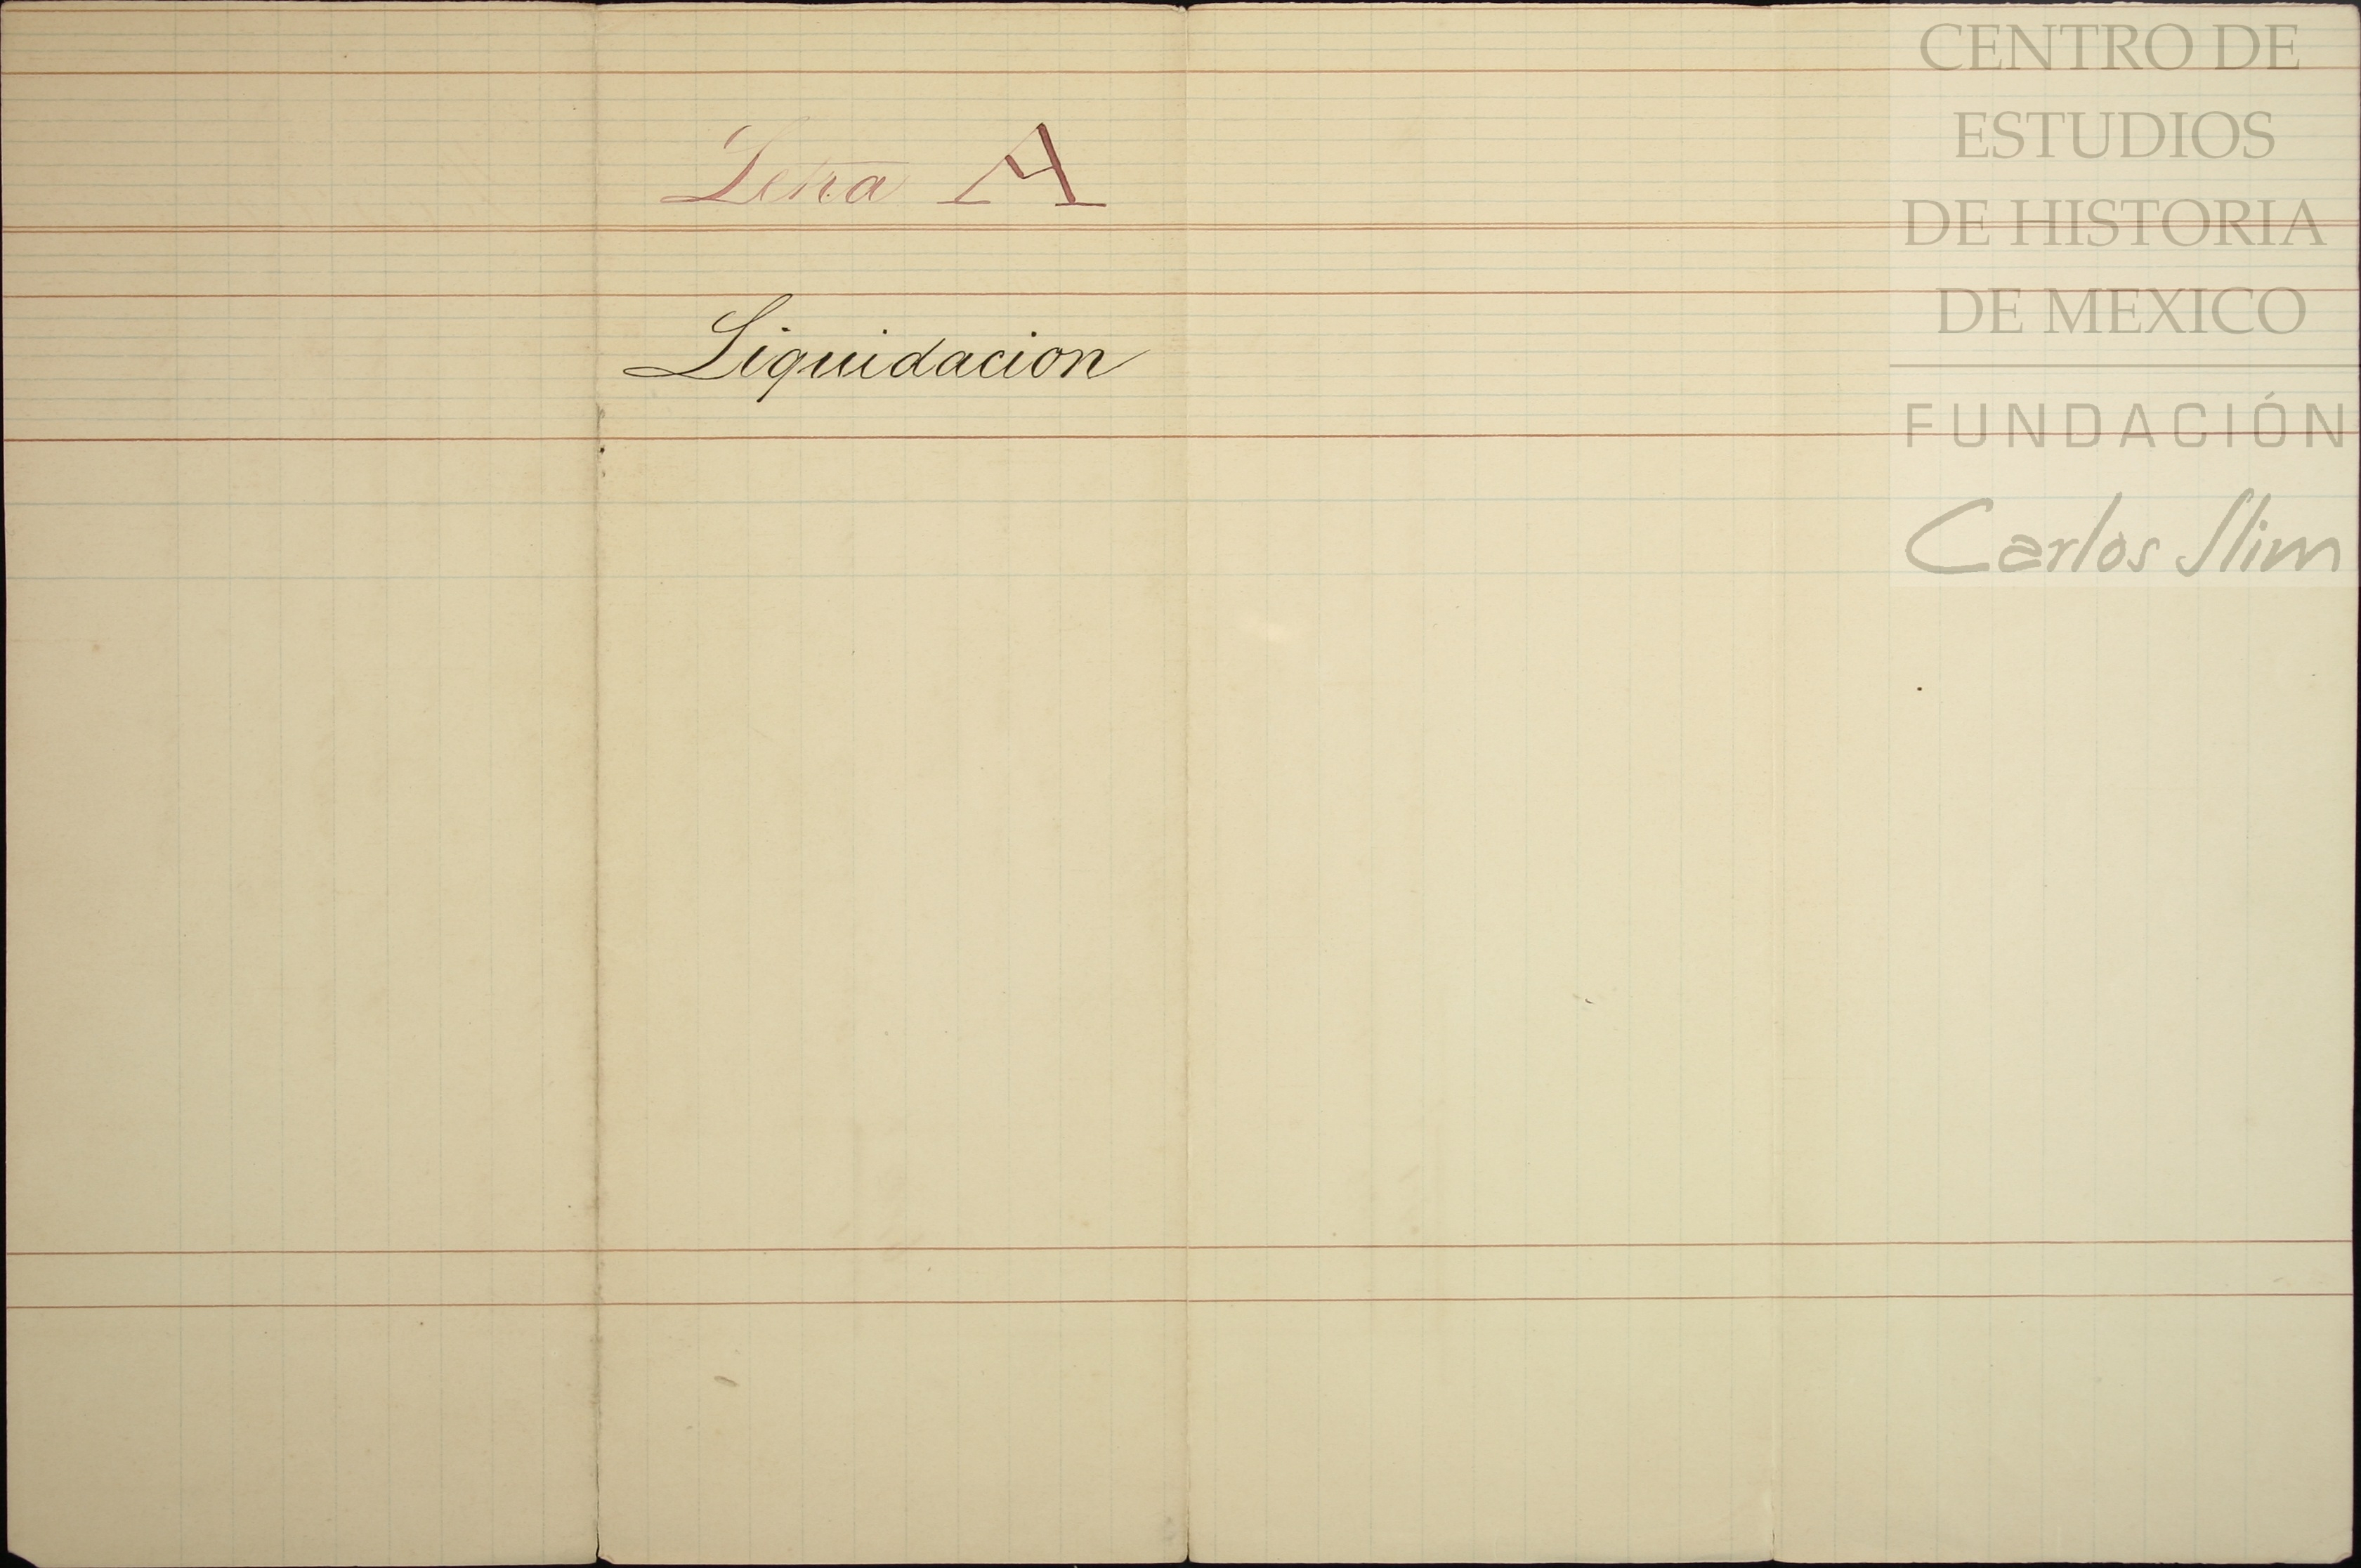 Letra A
Liquidacion
CENTRO DE
ESTUDIOS
DE HISTORIA
DE MEXICO
FUNDACIÓN
Carlos Slim